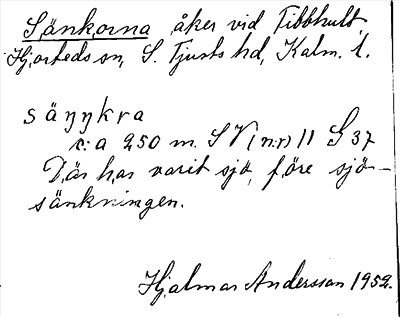 Sänkorna åker vid Tibbhult,
Hjorteds sn, S. Tjusts hd, Kalm. l.
säŋŋkra
c:a 250 m. SV (n:r) 11 G 37
Där har varit sjö, före sjö-
sänkningen.
Hjalmar Andersson 1952.